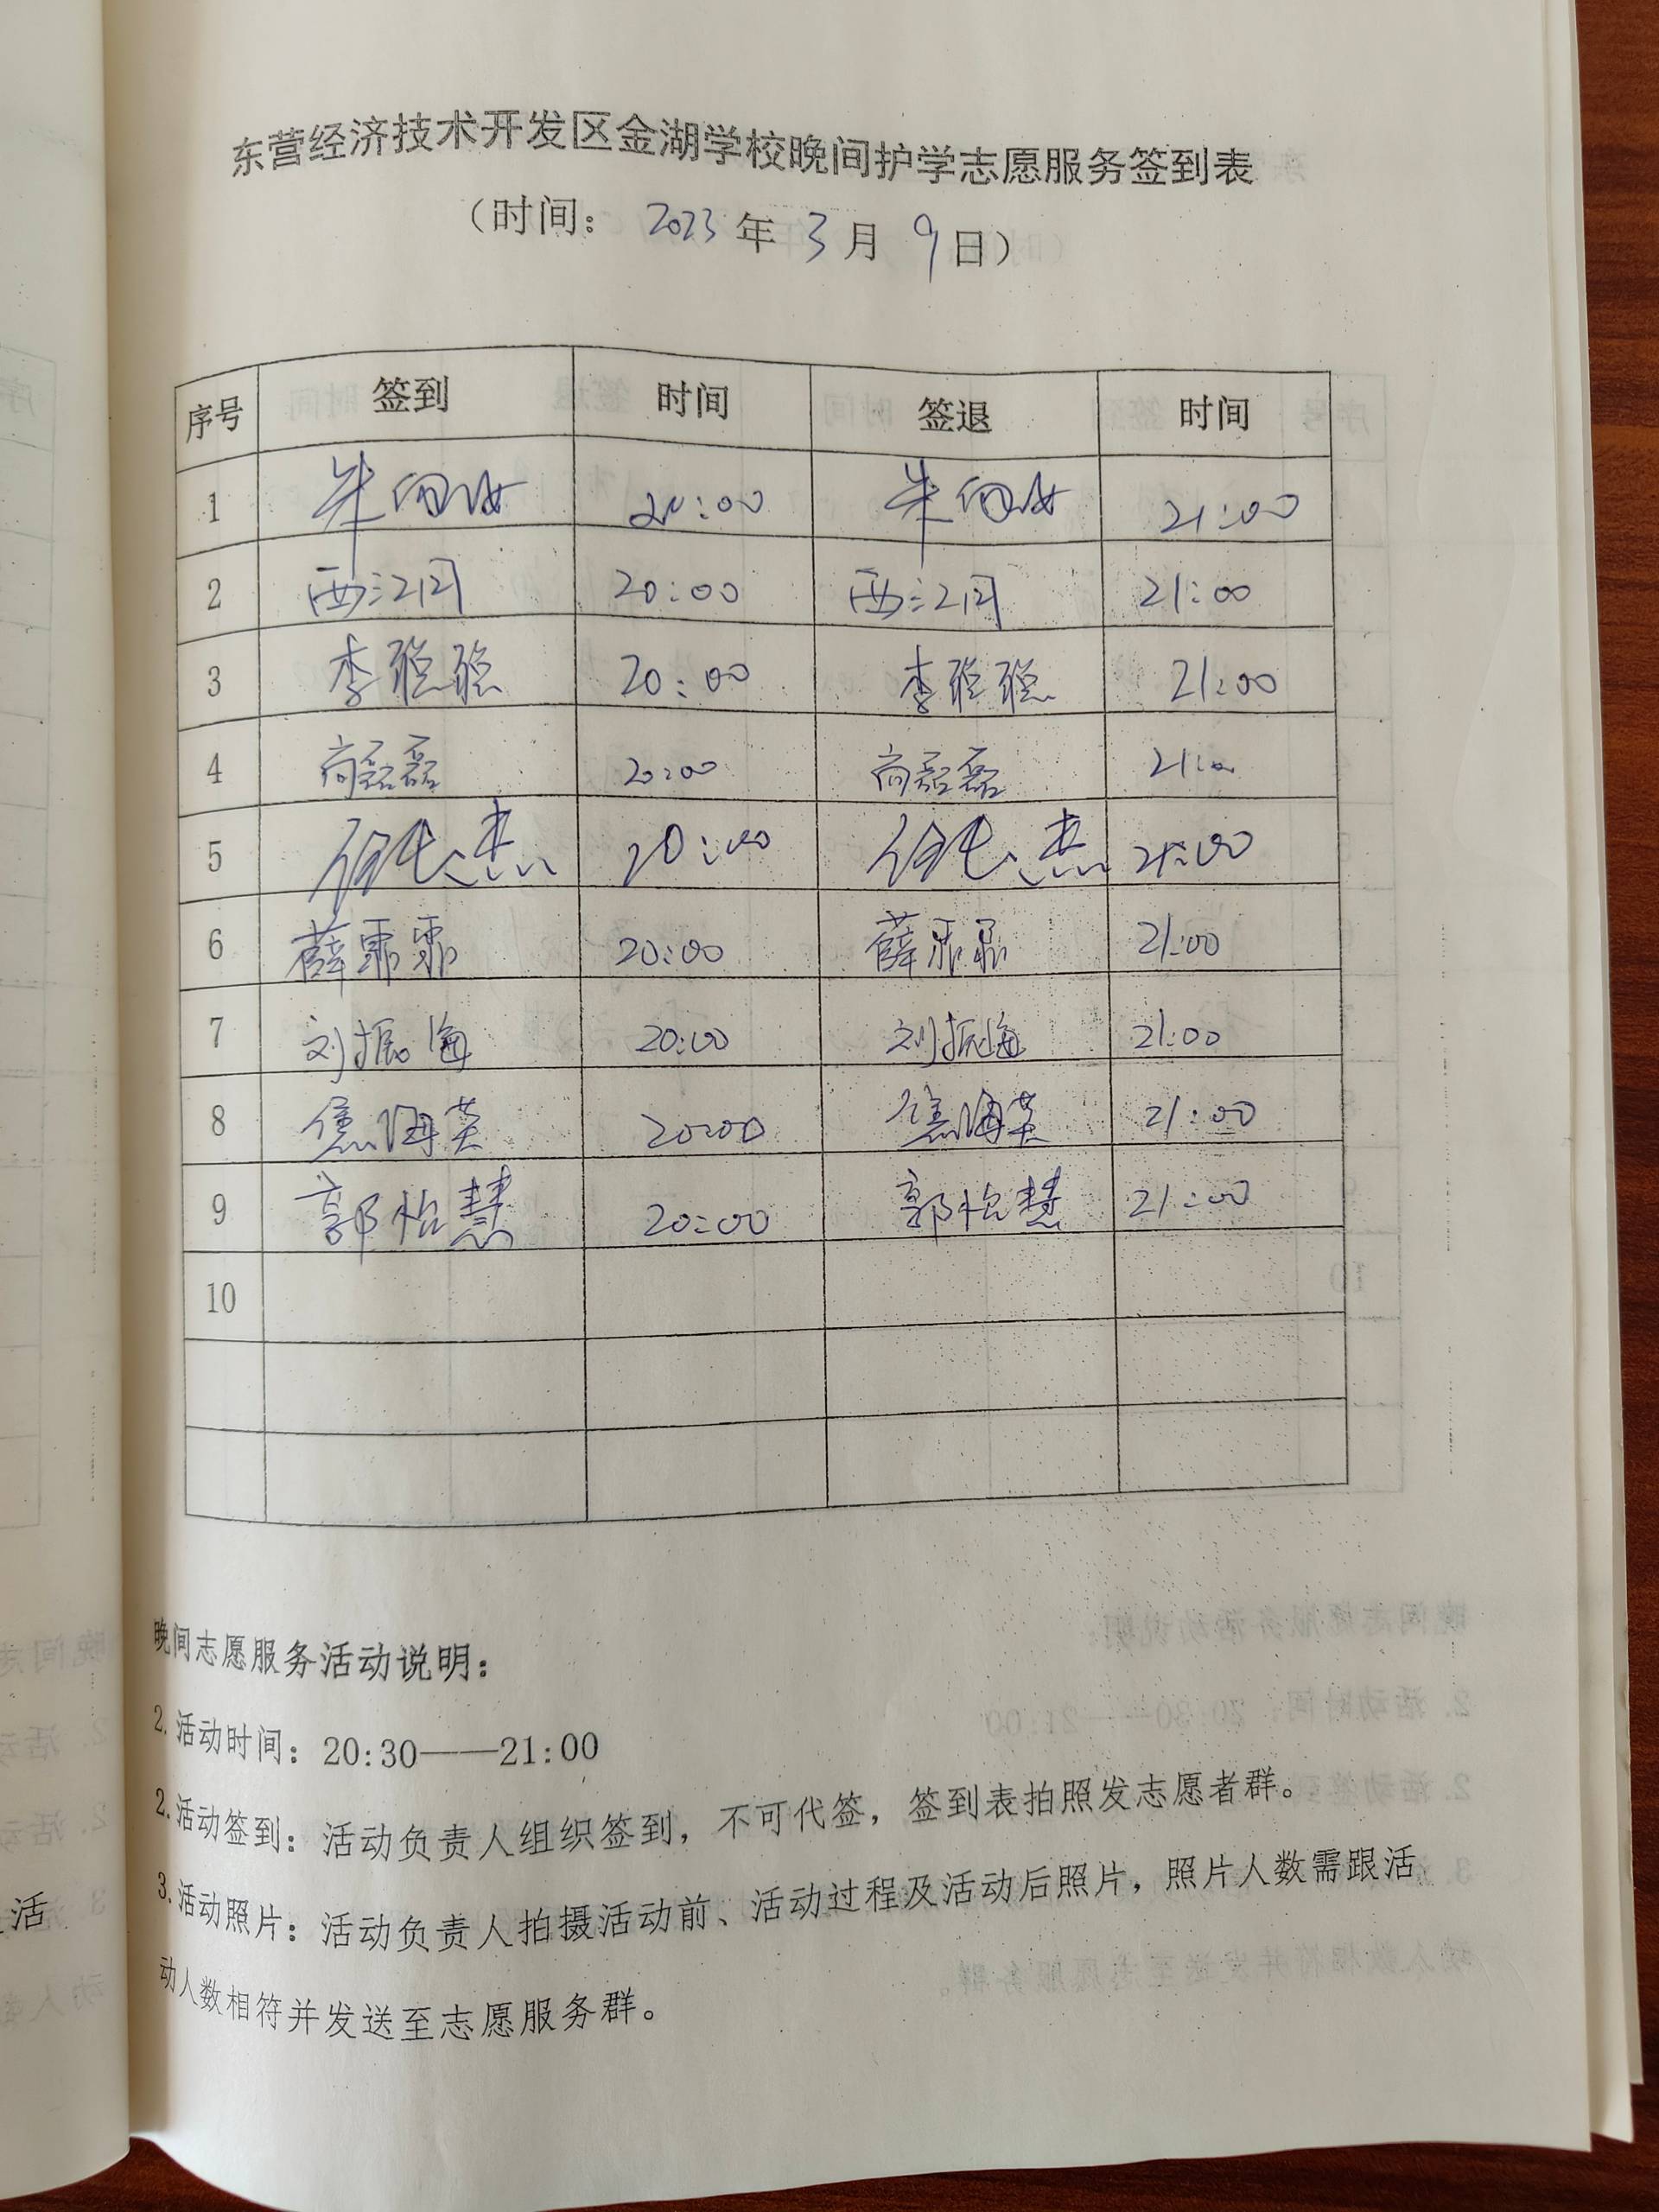 东营经济技术开发区金湖学校晚间护学志愿服务签到表
（时间： 2023 年 3 月 9 日）
序号 签到 时间 签退 时间
1 朱 20:00 朱 21:00
2 20:00 21:00
3 李聪聪 20:00 李聪聪 21:00
4 尚磊磊 20:00 尚磊磊 21:00
5 杰 20:00 杰 21:00
6 薛霏霏 20:00 薛霏霏 21:00
7 刘振海 20:00 刘振海 21:00
8 焦海英 20:00 焦海英 21:00
9 郭怡慧 20:00 郭怡慧 21:00
10
晚间志愿服务活动说明：
2.活动时间：20:30——21:00
2.活动签到：活动负责人组织签到，不可代签，签到表拍照发志愿者群。
3.活动照片：活动负责人拍摄活动前、活动过程及活动后照片，照片人数需跟活
动人数相符并发送至志愿服务群。
活